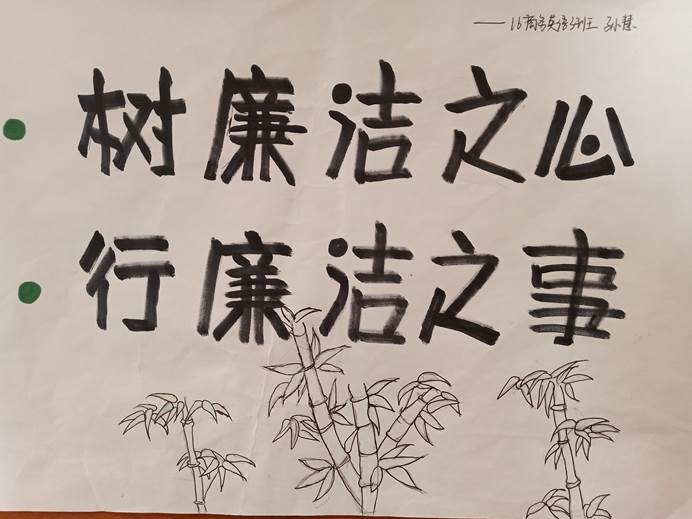 ——16商务英语3班 孙慧
树廉洁之心
行廉洁之事